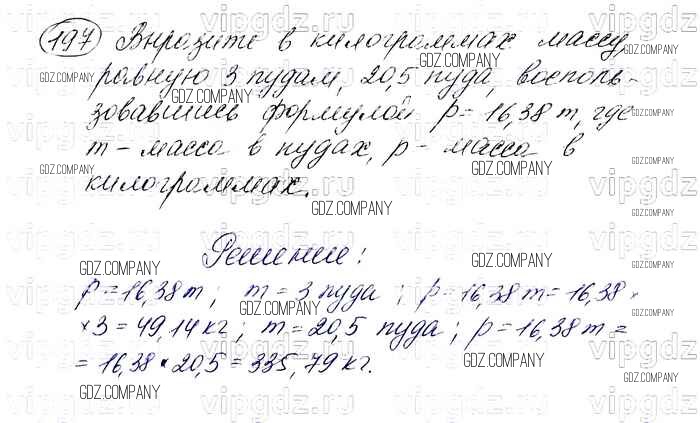 197 Выразите в килограммах массу,
равную 3 пудам, 20,5 пуда, восполь-
зовавшись формулой p = 16,38 m, где
m - масса в пудах, p - масса в
килограммах.
Решение:
p = 16,38 m; m = 3 пуда; p = 16,38 m = 16,38 ×
× 3 = 49,14 кг; m = 20,5 пуда; p = 16,38 m =
= 16,38 × 20,5 = 335,79 кг.
vipgdz.ru
GDZ.COMPANY